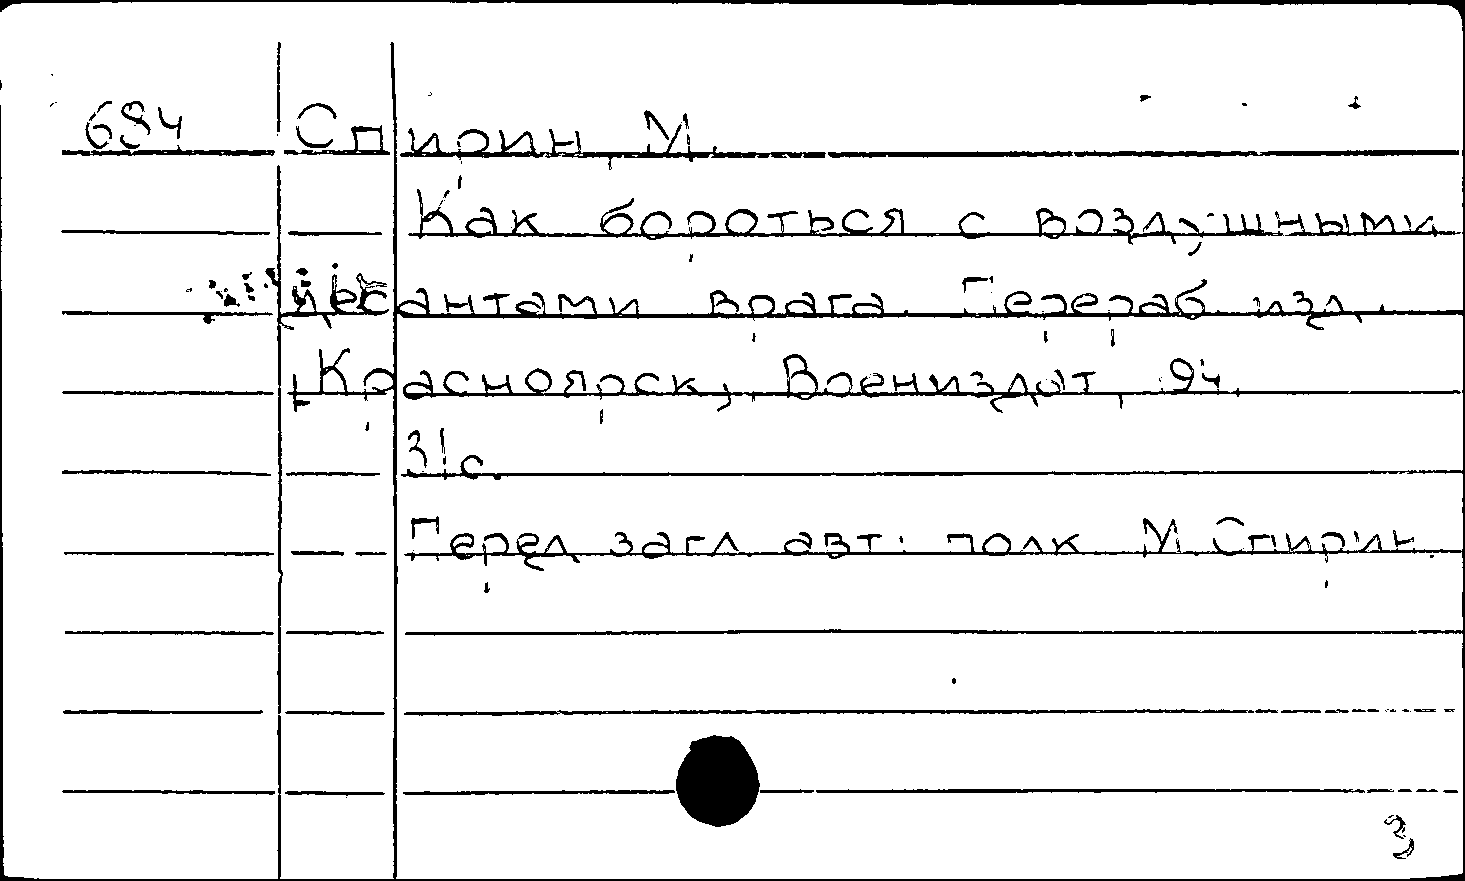 694 Спирин, М.
Как бороться с воздушными
десантами врага. Перераб. изд.
Красноярск, Воениздат, 94.
31с.
Перед загл. авт.: полк. М. Спирин.
3